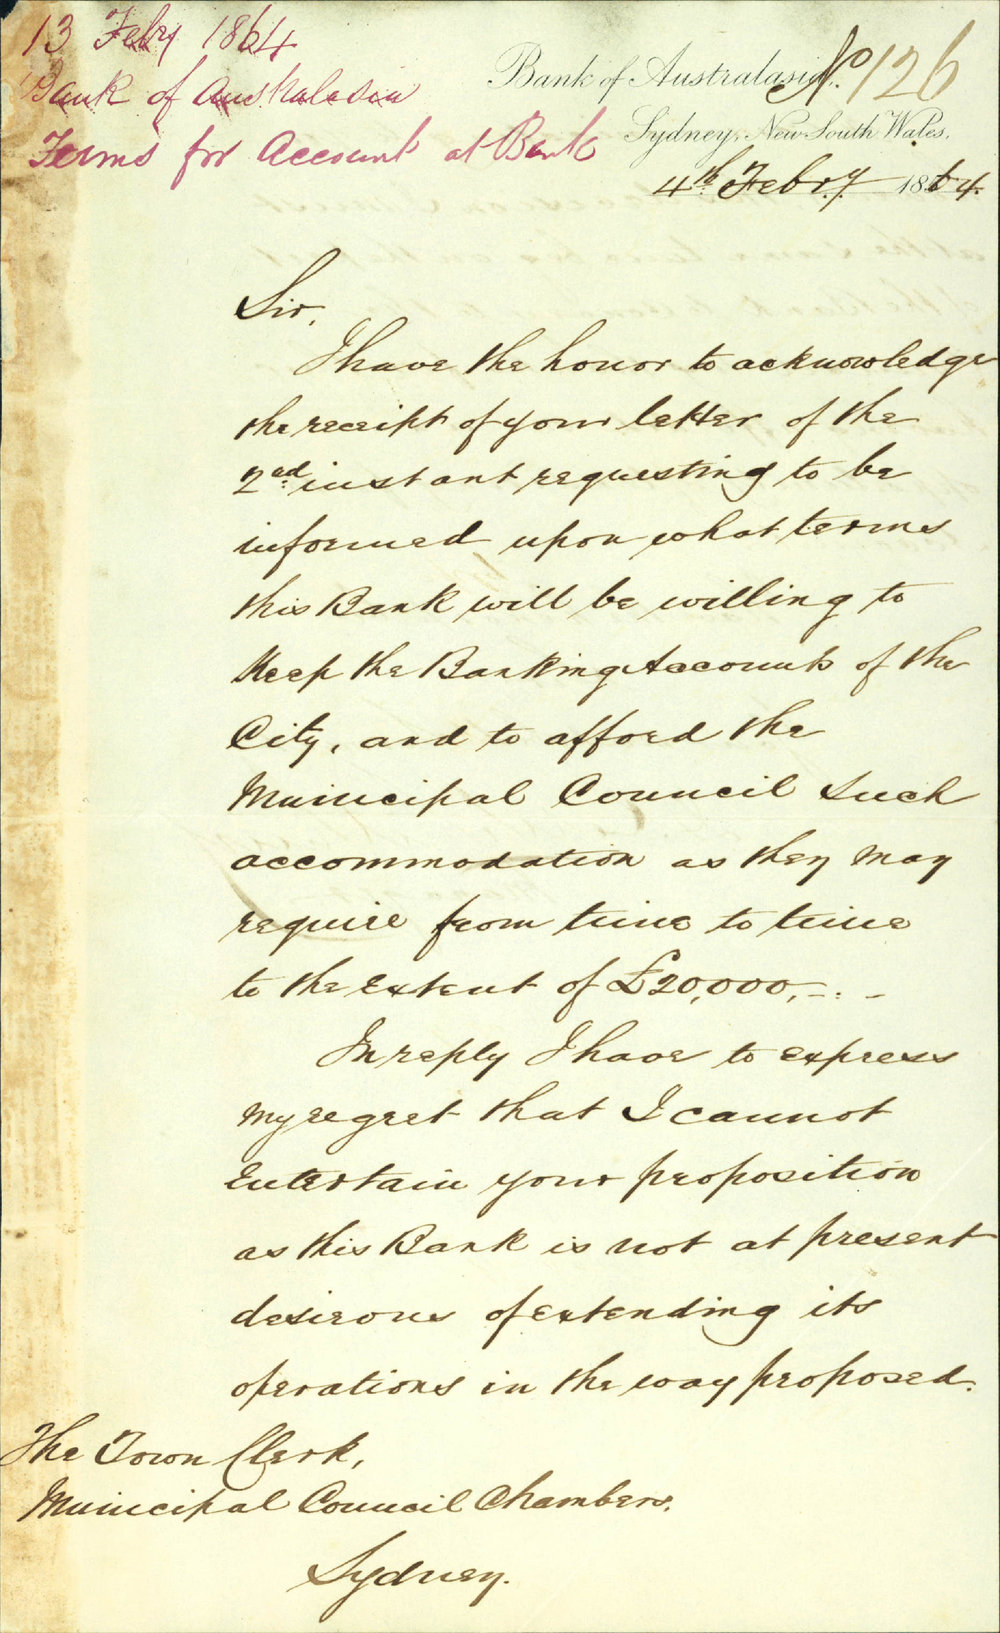 13 Febry 1864
Bank of Australasia
Terms for Account at Bank
No 126
Bank of Australasia,
Sydney, New South Wales,
4th Febry 1864.
Sir,
I have the honor to acknowledge
the receipt of your letter of the
2nd instant requesting to be
informed upon what terms
this Bank will be willing to
keep the Banking Accounts of the
City, and to afford the
Municipal Council such
accommodation as they may
require from time to time
to the extent of £20,000,-.-
In reply I have to express
my regret that I cannot
entertain your proposition
as this Bank is not at present
desirous of extending its
operations in the way proposed.
The Town Clerk,
Municipal Council Chambers,
Sydney.